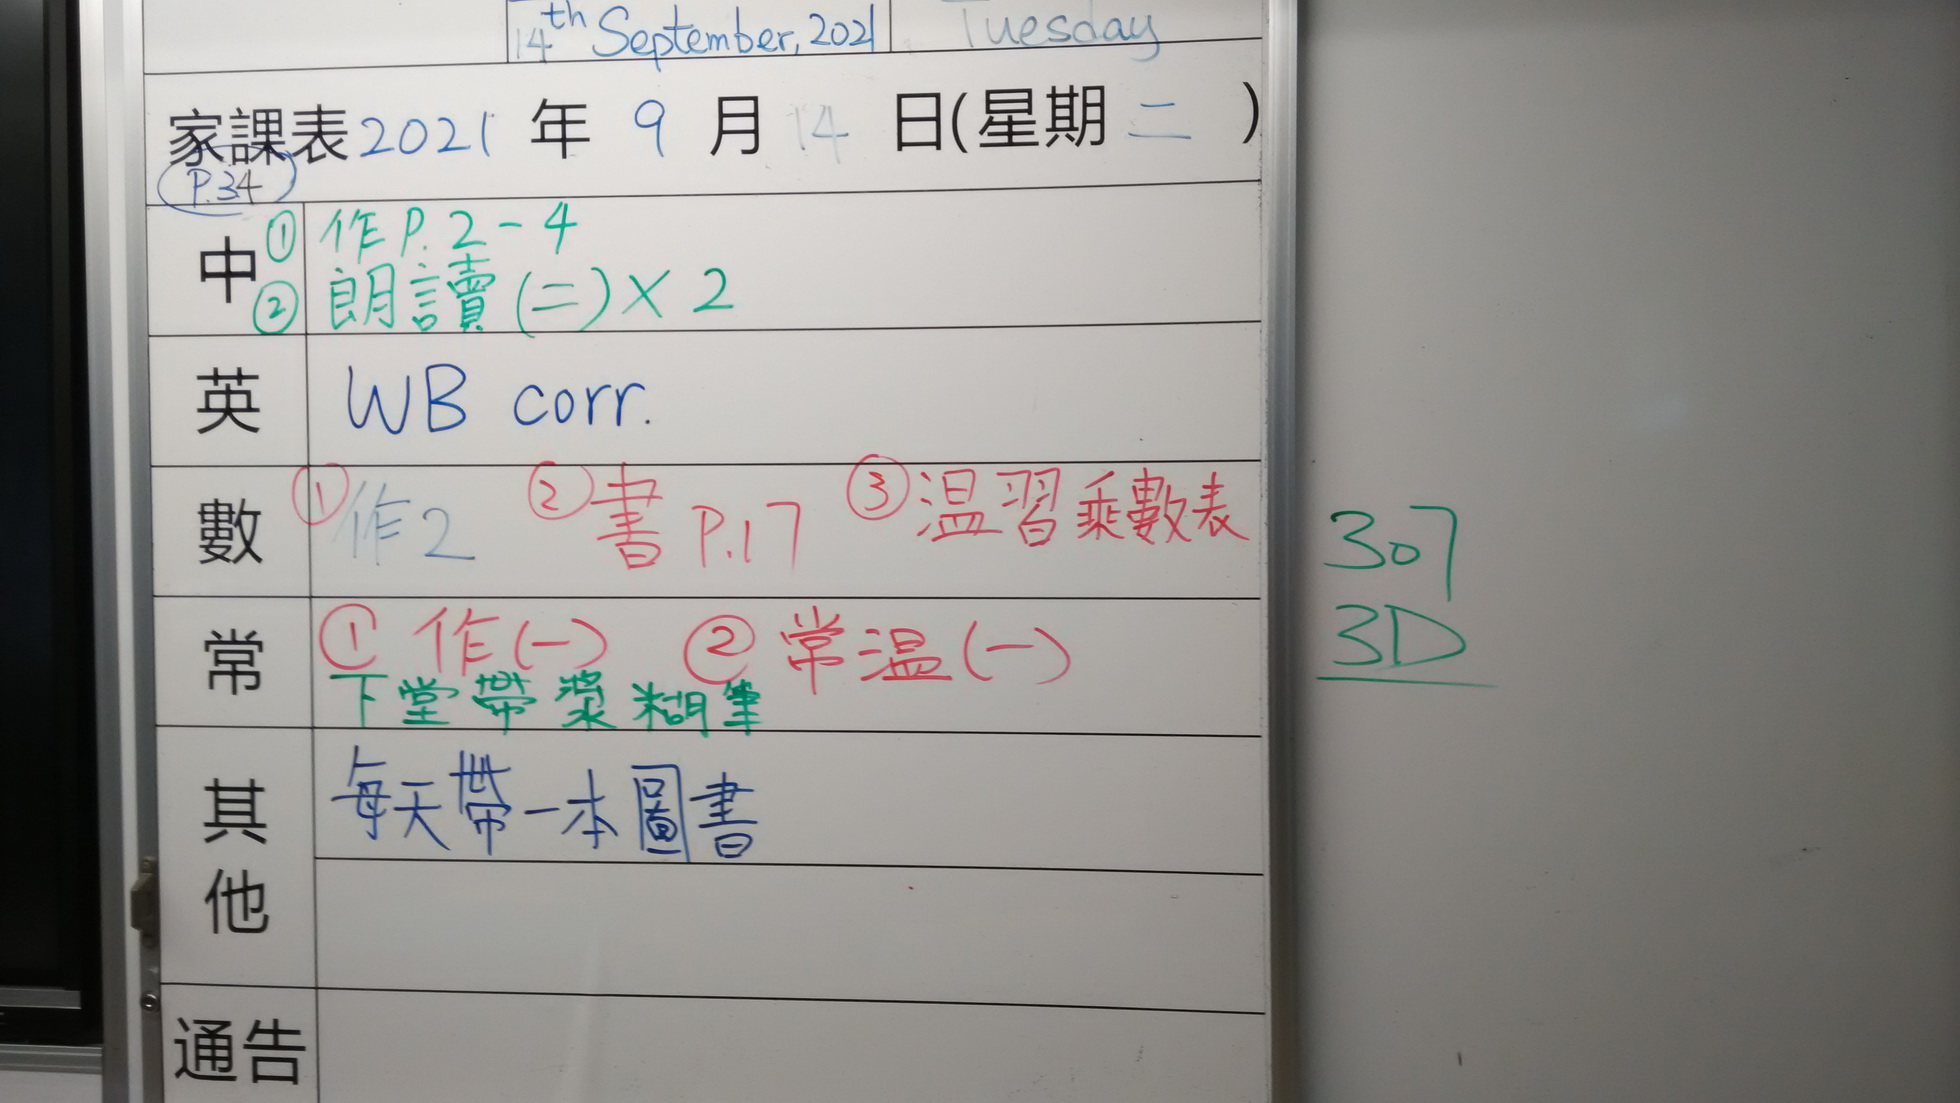 14th September, 2021 Tuesday
家課表2021年9月14日(星期二)
P.34
中 ① 作P.2-4
② 朗讀(二)×2
英 WB corr.
數 ①作2 ②書P.17 ③温習乘數表
常 ①作(一) ②常温(一)
下堂帶漿糊筆
其他 每天帶一本圖書
通告
307
3D